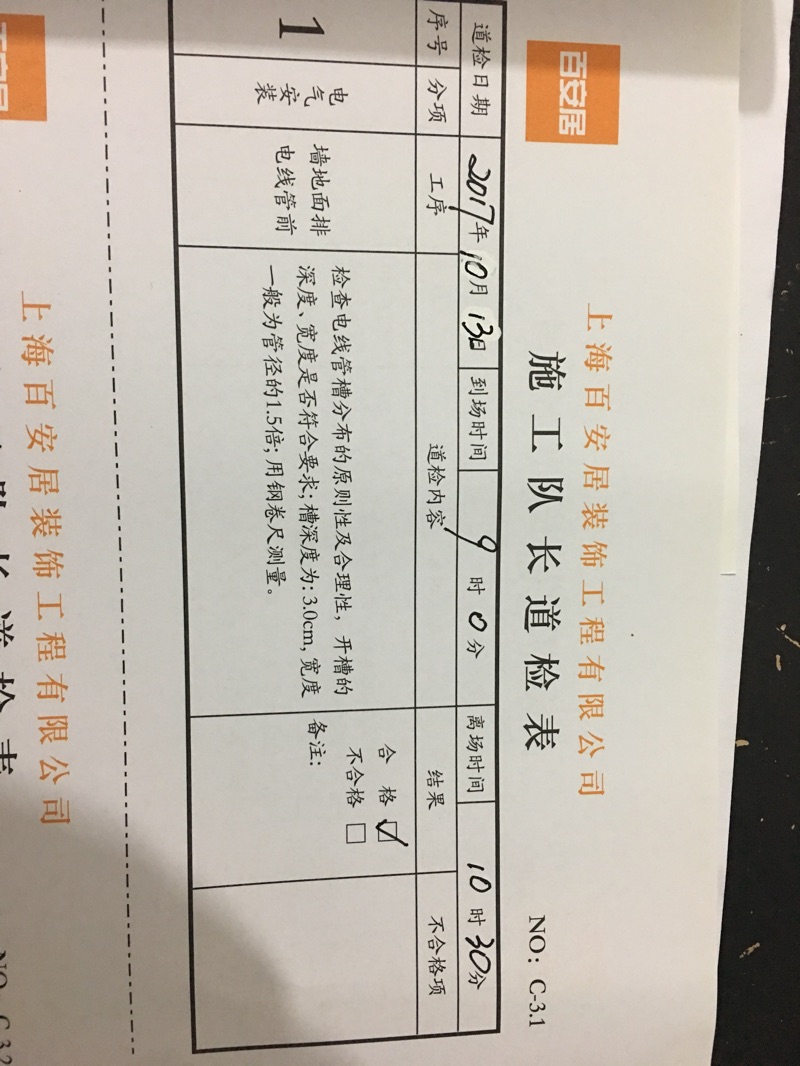 百安居
上海百安居装饰工程有限公司
施工队长道检表
NO: C-3.1
道检日期 2017年10月13日 到场时间 9时0分 离场时间 10时30分
序号 分项 工序 道检内容 结果 不合格项
1
电气安装
墙地面排
电线管前
检查电线管槽分布的原则性及合理性，开槽的
深度、宽度是否符合要求；槽深度为：3.0cm，宽度
一般为管径的1.5倍；用钢卷尺测量。
合 格 ☑
不合格 □
备注：
上海百安居装饰工程有限公司